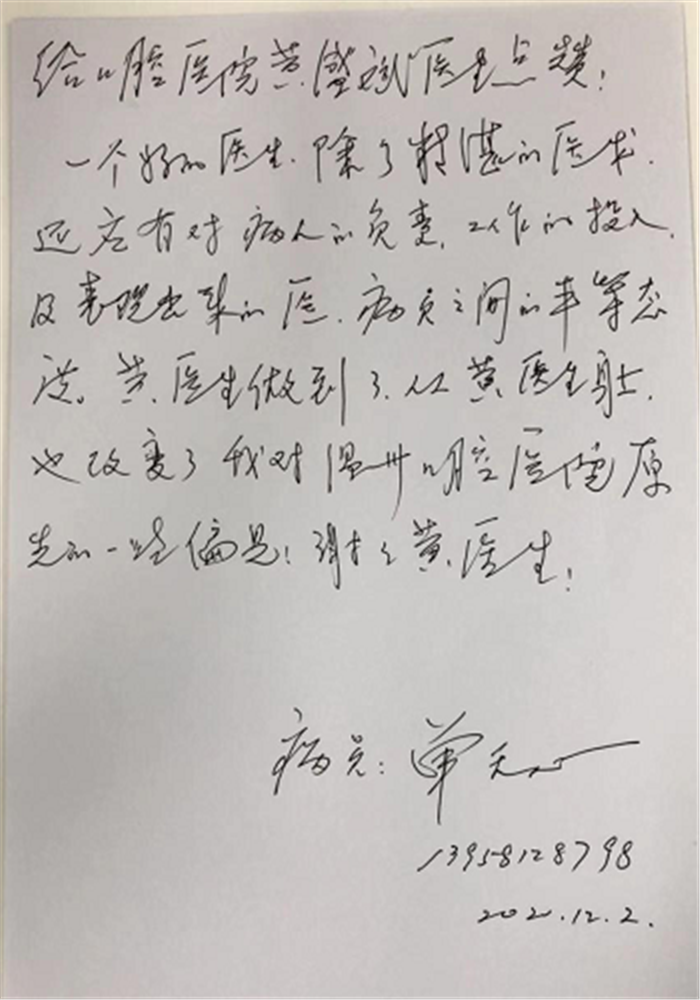 给口腔医院黄盛斌医生点赞!
一个好的医生.除了精湛的医术.
还应有对病人的负责.工作的投入.
及表现出来的医.病员之间的平等态
度。黄医生做到了.从黄医生身上.
也改变了我对温州口腔医院原
先的一些偏见!谢谢黄医生!
病员:单
13958128798
2020.12.2.